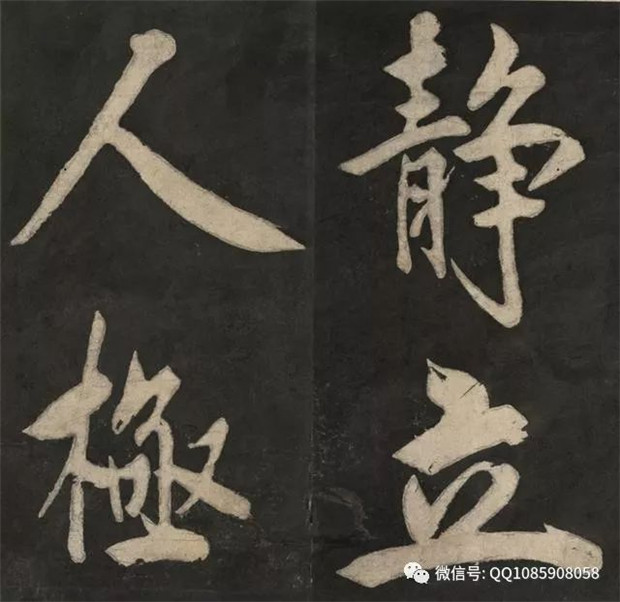 静立
人極
微信号: QQ1085908058